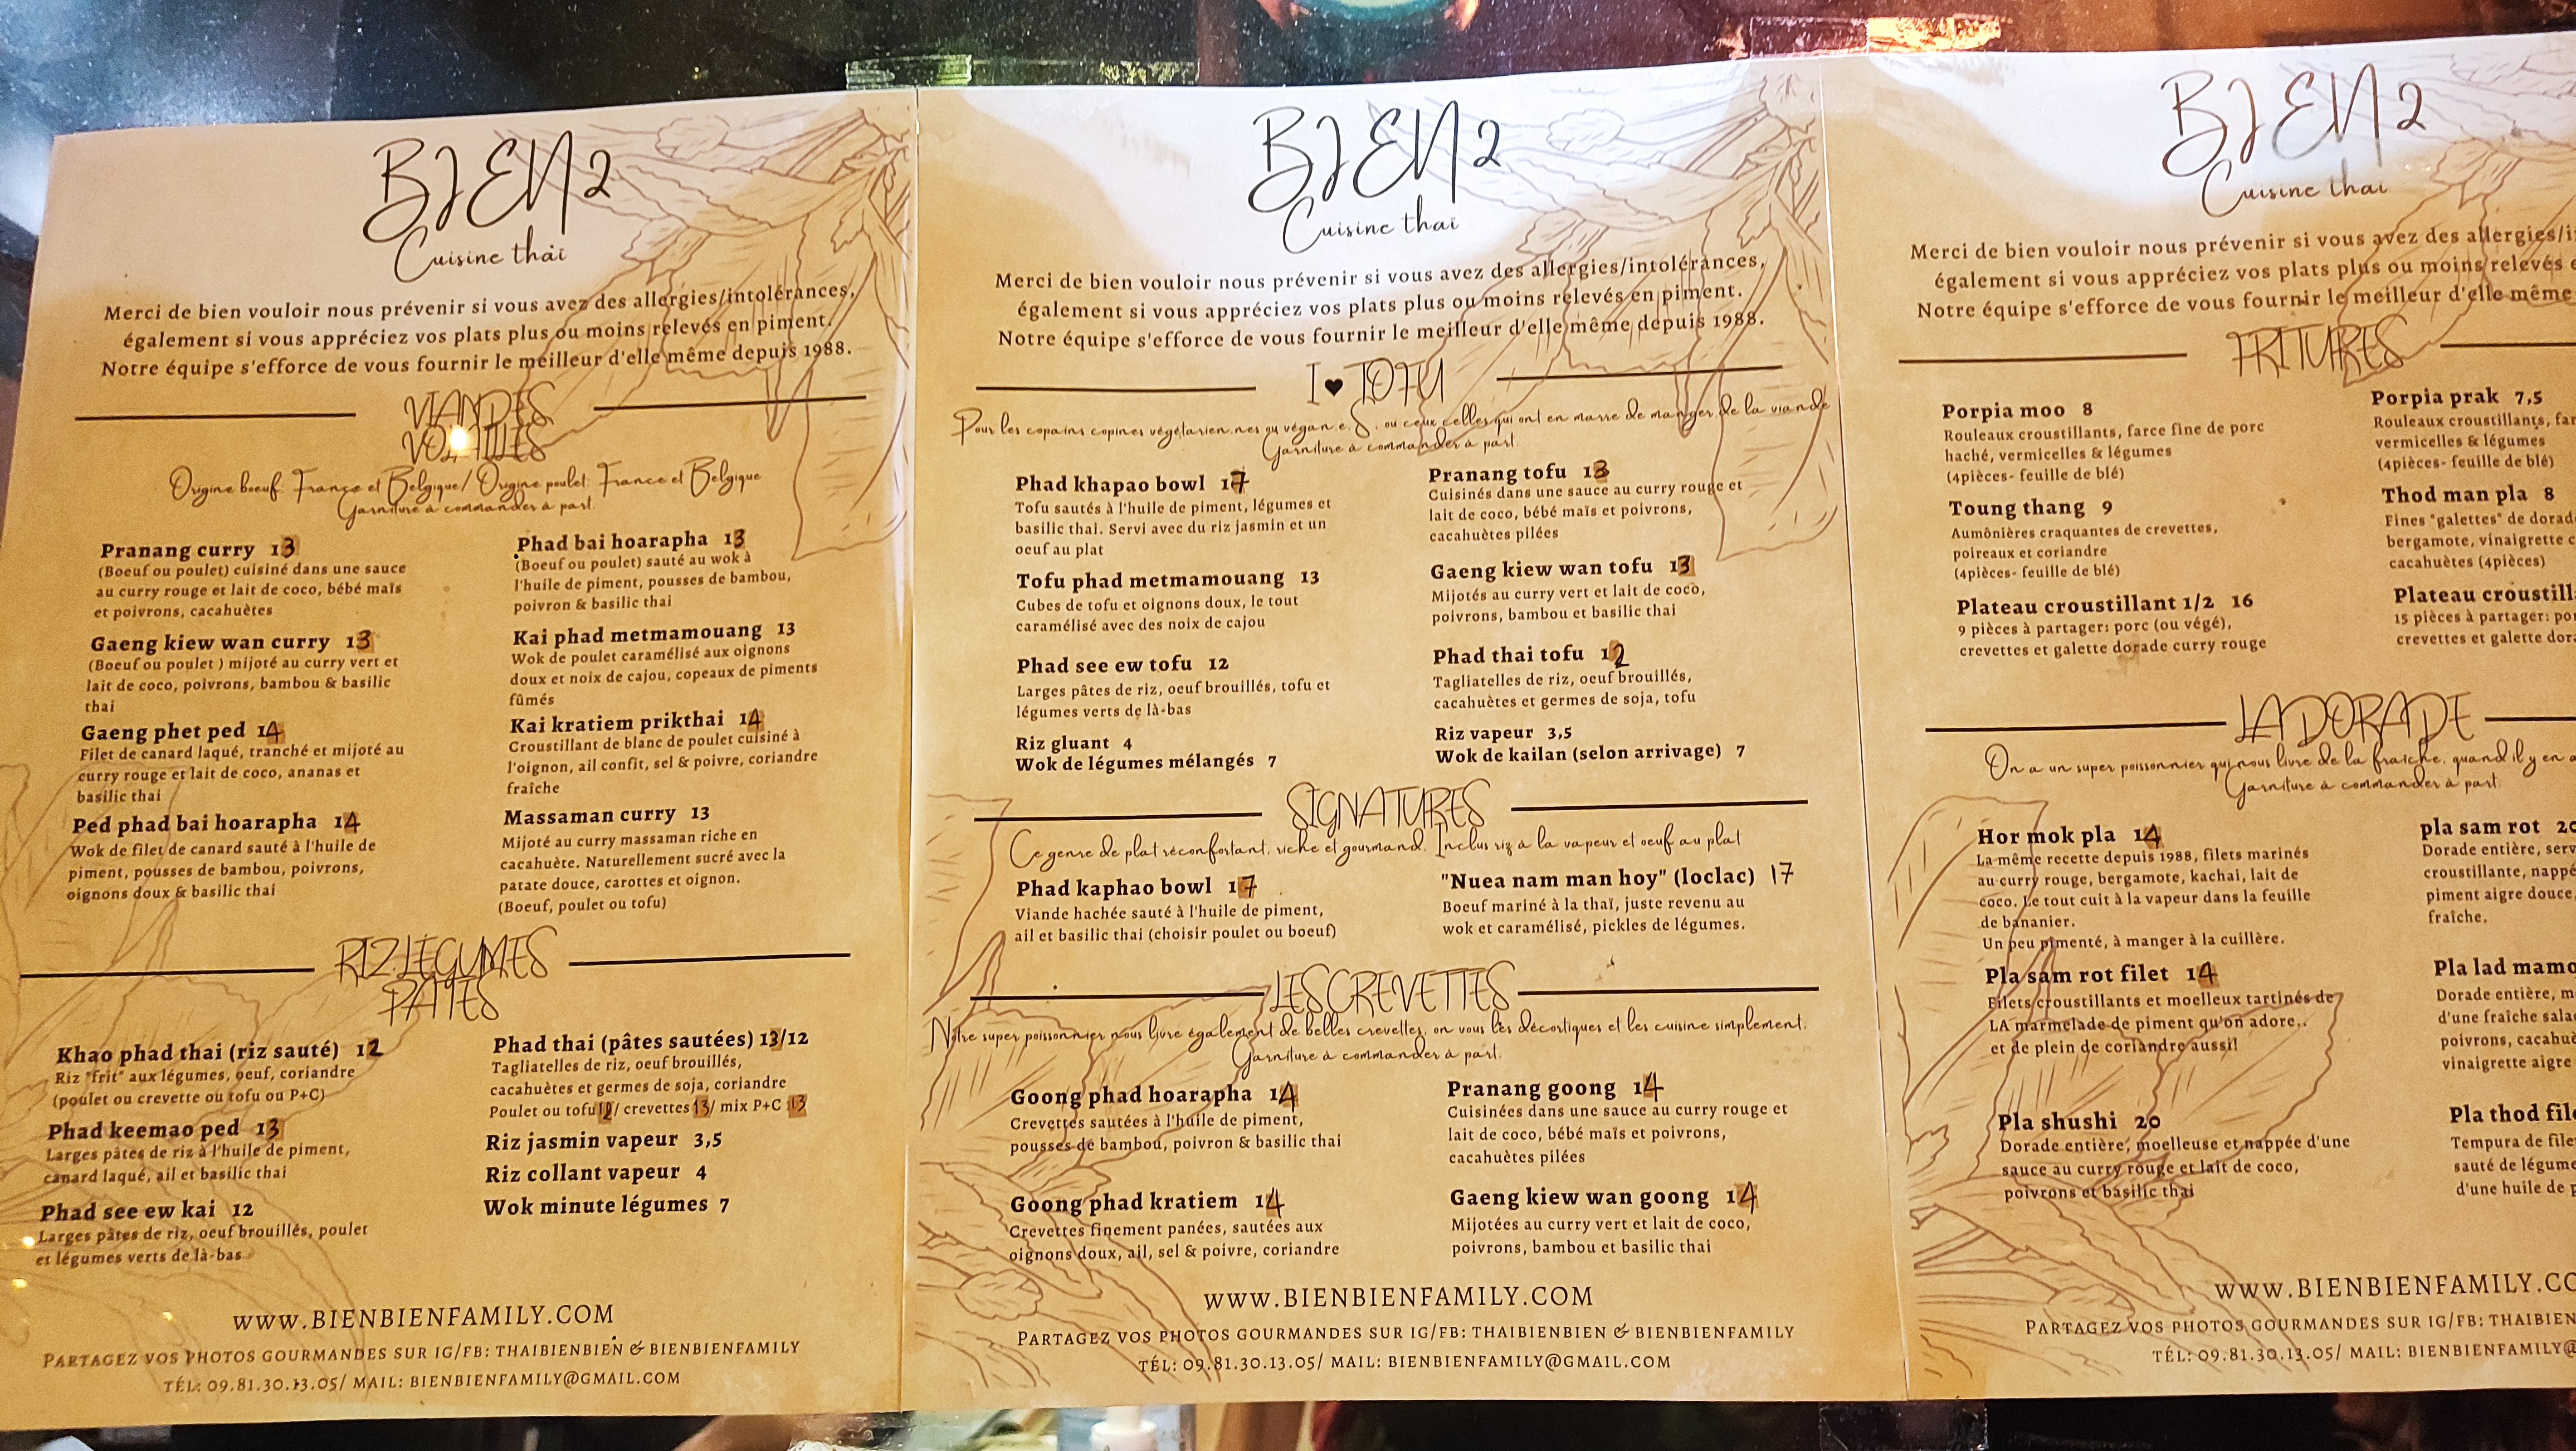 BIEN 2
Cuisine thaï
Merci de bien vouloir nous prévenir si vous avez des allergies/intolérances,
également si vous appréciez vos plats plus ou moins relevés en piment.
Notre équipe s'efforce de vous fournir le meilleur d'elle même depuis 1988.
VIANDES
VOLAILLES
Origine boeuf: France et Belgique/ Origine poulet: France et Belgique
Garniture à commander à part.
Pranang curry 13
(Boeuf ou poulet) cuisiné dans une sauce
au curry rouge et lait de coco, bébé maïs
et poivrons, cacahuètes
Gaeng kiew wan curry 13
(Boeuf ou poulet ) mijoté au curry vert et
lait de coco, poivrons, bambou & basilic
thai
Gaeng phet ped 14
Filet de canard laqué, tranché et mijoté au
curry rouge et lait de coco, ananas et
basilic thai
Ped phad bai hoarapha 14
Wok de filet de canard sauté à l'huile de
piment, pousses de bambou, poivrons,
oignons doux & basilic thai
Phad bai hoarapha 13
(Boeuf ou poulet) sauté au wok à
l'huile de piment, pousses de bambou,
poivron & basilic thai
Kai phad metmamouang 13
Wok de poulet caramélisé aux oignons
doux et noix de cajou, copeaux de piments
fûmés
Kai kratiem prikthai 14
Croustillant de blanc de poulet cuisiné à
l'oignon, ail confit, sel & poivre, coriandre
fraîche
Massaman curry 13
Mijoté au curry massaman riche en
cacahuète. Naturellement sucré avec la
patate douce, carottes et oignon.
(Boeuf, poulet ou tofu)
RIZ LEGUMES
PATES
Khao phad thai (riz sauté) 12
Riz "frit" aux légumes, oeuf, coriandre
(poulet ou crevette ou tofu ou P+C)
Phad keemao ped 13
Larges pâtes de riz à l'huile de piment,
canard laqué, ail et basilic thai
Phad see ew kai 12
Larges pâtes de riz, oeuf brouillés, poulet
et légumes verts de là-bas
Phad thai (pâtes sautées) 13/12
Tagliatelles de riz, oeuf brouillés,
cacahuètes et germes de soja, coriandre
Poulet ou tofu 12/ crevettes 13/ mix P+C 13
Riz jasmin vapeur 3,5
Riz collant vapeur 4
Wok minute légumes 7
WWW.BIENBIENFAMILY.COM
PARTAGEZ VOS PHOTOS GOURMANDES SUR IG/FB: THAIBIENBIEN & BIENBIENFAMILY
TÉL: 09.81.30.13.05/ MAIL: BIENBIENFAMILY@GMAIL.COM
BIEN 2
Cuisine thaï
Merci de bien vouloir nous prévenir si vous avez des allergies/intolérances,
également si vous appréciez vos plats plus ou moins relevés en piment.
Notre équipe s'efforce de vous fournir le meilleur d'elle même depuis 1988.
I ♥ TOFU
Pour les copains copines végétarien.nes ou végan.e.S, ou ceux celles qui ont en marre de manger de la viande
Garniture à commander à part.
Phad khapao bowl 17
Tofu sautés à l'huile de piment, légumes et
basilic thai. Servi avec du riz jasmin et un
oeuf au plat
Tofu phad metmamouang 13
Cubes de tofu et oignons doux, le tout
caramélisé avec des noix de cajou
Phad see ew tofu 12
Larges pâtes de riz, oeuf brouillés, tofu et
légumes verts de là-bas
Riz gluant 4
Wok de légumes mélangés 7
Pranang tofu 13
Cuisinés dans une sauce au curry rouge et
lait de coco, bébé maïs et poivrons,
cacahuètes pilées
Gaeng kiew wan tofu 13
Mijotés au curry vert et lait de coco,
poivrons, bambou et basilic thai
Phad thai tofu 12
Tagliatelles de riz, oeuf brouillés,
cacahuètes et germes de soja, tofu
Riz vapeur 3,5
Wok de kailan (selon arrivage) 7
SIGNATURES
Ce genre de plat réconfortant, riche et gourmand. Inclus riz à la vapeur et oeuf au plat
Phad kaphao bowl 17
Viande hachée sauté à l'huile de piment,
ail et basilic thai (choisir poulet ou boeuf)
"Nuea nam man hoy" (loclac) 17
Boeuf mariné à la thaï, juste revenu au
wok et caramélisé, pickles de légumes.
LES CREVETTES
Notre super poissonnier nous livre également de belles crevettes, on vous les décortiques et les cuisine simplement.
Garniture à commander à part.
Goong phad hoarapha 14
Crevettes sautées à l'huile de piment,
pousses de bambou, poivron & basilic thai
Goong phad kratiem 14
Crevettes finement panées, sautées aux
oignons doux, ail, sel & poivre, coriandre
Pranang goong 14
Cuisinées dans une sauce au curry rouge et
lait de coco, bébé maïs et poivrons,
cacahuètes pilées
Gaeng kiew wan goong 14
Mijotées au curry vert et lait de coco,
poivrons, bambou et basilic thai
WWW.BIENBIENFAMILY.COM
PARTAGEZ VOS PHOTOS GOURMANDES SUR IG/FB: THAIBIENBIEN & BIENBIENFAMILY
TÉL: 09.81.30.13.05/ MAIL: BIENBIENFAMILY@GMAIL.COM
BIEN 2
Cuisine thaï
Merci de bien vouloir nous prévenir si vous avez des allergies/
également si vous appréciez vos plats plus ou moins relevés
Notre équipe s'efforce de vous fournir le meilleur d'elle même
FRITURES
Porpia moo 8
Rouleaux croustillants, farce fine de porc
haché, vermicelles & légumes
(4pièces- feuille de blé)
Toung thang 9
Aumônières craquantes de crevettes,
poireaux et coriandre
(4pièces- feuille de blé)
Plateau croustillant 1/2 16
9 pièces à partager: porc (ou végé),
crevettes et galette dorade curry rouge
Porpia prak 7,5
Rouleaux croustillants,
vermicelles & légumes
(4pièces- feuille de blé)
Thod man pla 8
Fines "galettes" de
bergamote, vinaigrette
cacahuètes (4pièces)
Plateau
15 pièces à partager:
crevettes et galette
LA DORADE
On a un super poissonnier qui nous livre de la fraîche, quand il y en a
Garniture à commander à part.
Hor mok pla 14
La même recette depuis 1988, filets marinés
au curry rouge, bergamote, kachai, lait de
coco. Le tout cuit à la vapeur dans la feuille
de bananier.
Un peu pimenté, à manger à la cuillère.
Pla sam rot filet 14
Filets croustillants et moelleux tartinés de
LA marmelade de piment qu'on adore..
et de plein de coriandre aussi!
Pla shushi 20
Dorade entière, moelleuse et nappée d'une
sauce au curry rouge et lait de coco,
poivrons et basilic thai
pla sam rot 20
Dorade entière,
croustillante,
piment aigre douce,
fraîche.
Pla lad
Dorade entière,
d'une fraîche
poivrons,
vinaigrette aigre
Pla thod
Tempura de
sauté de
d'une huile de
WWW.BIENBIENFAMILY.CO
PARTAGEZ VOS PHOTOS GOURMANDES SUR IG/FB: THAIBIEN
TÉL: 09.81.30.13.05/ MAIL: BIENBIENFAMILY@